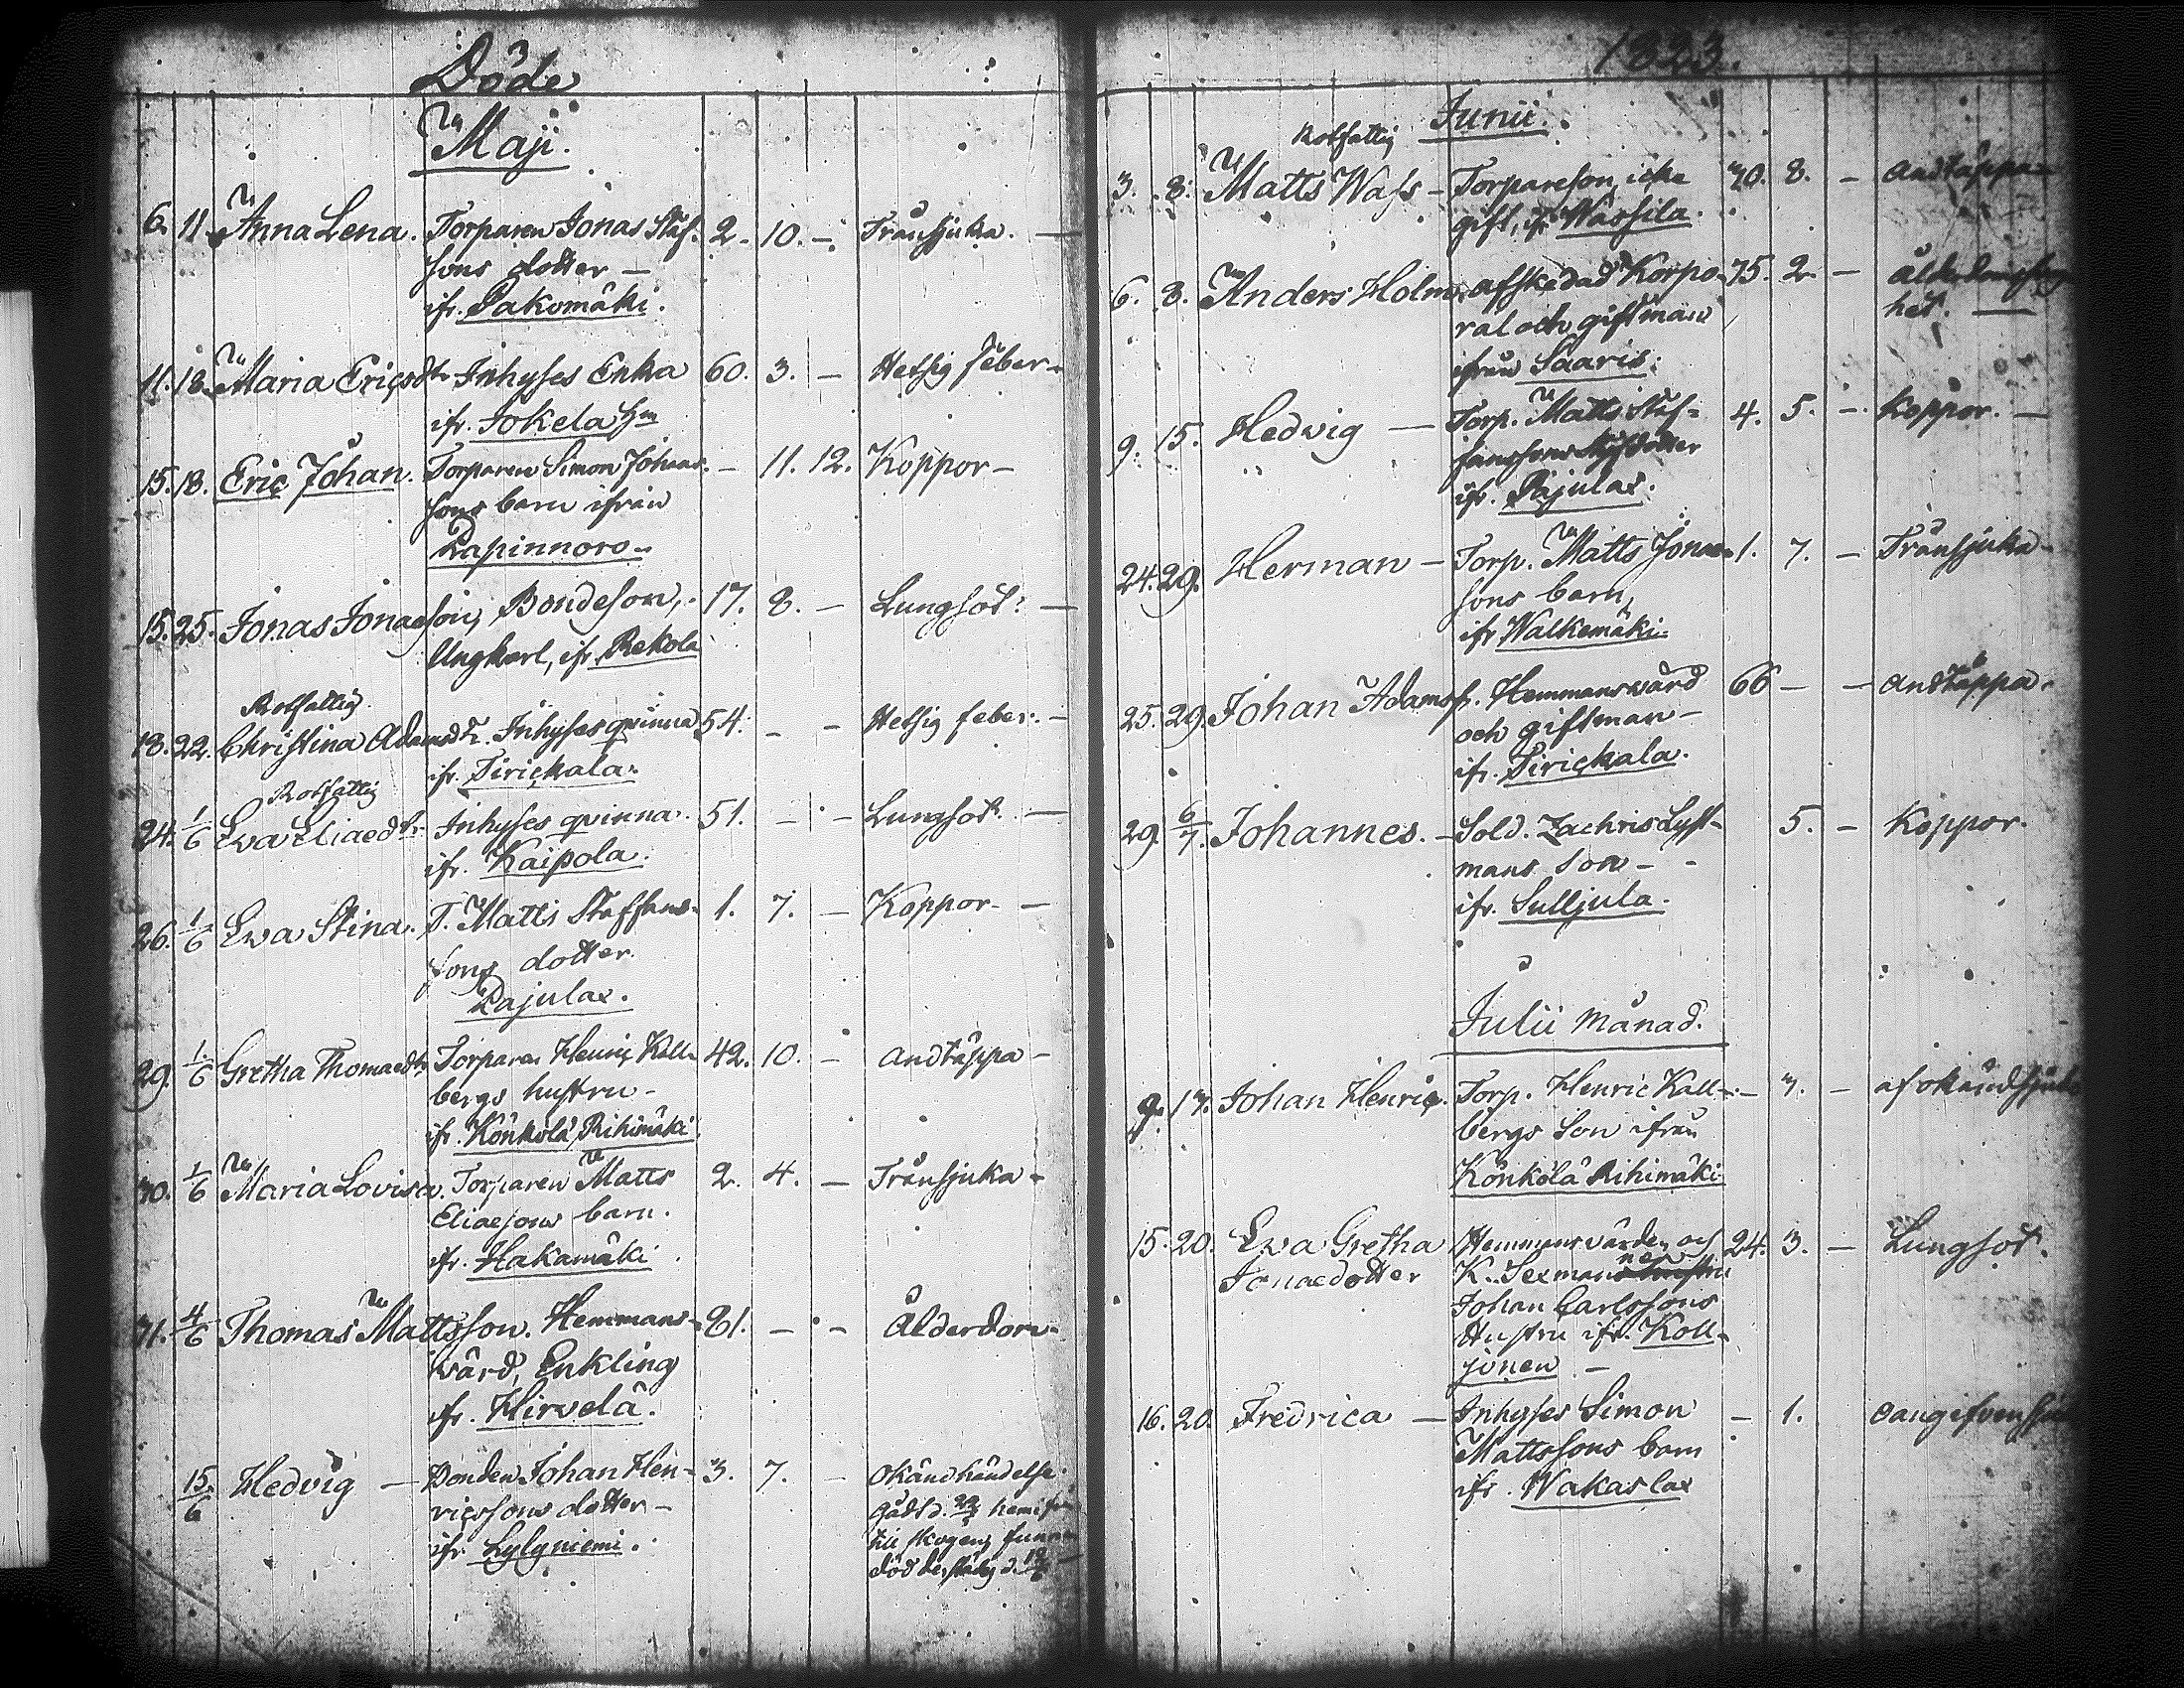 Döde
Maji.
6. 11. Anna Lena. Torparen Jonas Staf- 2. 10. – Trånsjuka. –
sons dotter –
ifr. Pakomäki.
11. 18. Maria Ericsdr Inhyses Enka 60. 3. – Hetsig feber –
ifr. Jokela
15. 18. Eric Johan. Torparen Simon Johans- – 11. 12. Koppor –
sons barn ifrån
Papinnoro.
15. 25. Jonas Jonaeson, Bondeson, 17. 8. – Lungsot. –
Ungkarl, ifr. Rekola
Rotfattig
18. 22. Christina Adamsdr. Inhyses qvinna 54. – – Hetsig feber. –
ifr. Pirickala.
Rotfattig
24. 1/6 Eva Eliaedr. Inhyses qvinna. 51. – – Lungsot. –
ifr. Kaipola.
26. 1/6 Eva Stina. T. Matts Staffans- 1. 7. – Koppor –
sons dotter.
Pajulax.
29. 1/6 Gretha Thomaedr. Torparen Henric Kall- 42. 10. – andtäppa –
bergs hustru –
ifr. Könkölä Rihimäki
30. 1/6 Maria Lovisa. Torparen Matts 2. 4. – Trånsjuka –
Eliaesons barn.
ifr. Hakamäki
31. 4/6 Thomas Mattsson. Hemmans- 81. – – Ålderdom.
wärd, Enkling
ifr. Hirvelä.
15/6 Hedvig – Bonden Johan Hen- 3. 7. – Okänd händelse
ricssons dotter – gådt d. hemifrån
ifr. Lylyniemi. till skogen, funnen
död d.
1823.
Junii.
Rotfattig
3. 8. Matts Wass – Torpareson, icke 30. 8. – andtäppa
gift, ifr. Wässilä.
6. 8. Anders Holm, afskedad Korpo- 75. 2. –
ral och giftman het. –
ifrån Saaris.
9. 15. Hedvig – Torp. Matts Staf- 4. 5. – Koppor. –
fanssons Styfdotter
ifr. Pajulax.
24. 29. Herman – Torp. Matts Jonae- 1. 7. – Trånsjuka –
sons barn,
ifr Walkemäki
25. 29. Johan Adamss. Hemmanswärd 66 – – andtäppa.
och giftman –
ifr. Pirickala.
29. 6/7. Johannes. – Sold. Zachris Lyst- 5. – Koppor.
mans Son –
ifr. Sulljula.
Julii Månad.
9. 17. Johan Henric. Torp. Henric Kall- – 3. – af okänd
bergs Son ifrån
Könkölä Rihimäki
15. 20. Eva Gretha Hemmanswärden och 24. 3. – Lungsot.
Jonaedotter K. Sexmannen
Johan Carlssons
Hustru ifr. Koll-
jonen –
16. 20. Fredrica – Inhyses Simon – 1. oangifven
Mattssons barn
ifr. Wakaslax